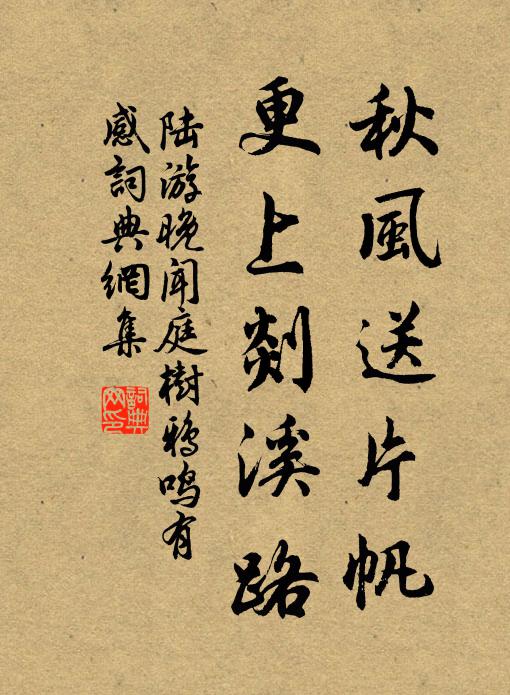 秋風送片帆
更上剡溪路
陸游晚闻庭樹鴉鸣有
感詞典網集
詞典
网印